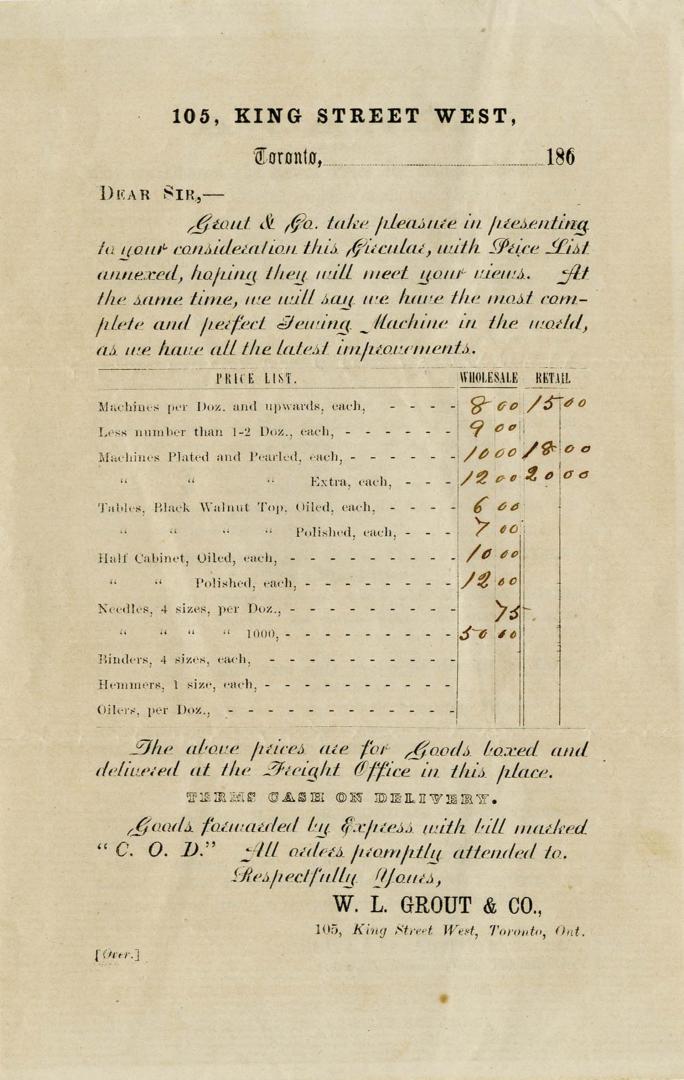 105, KING STREET WEST,
Toronto, 186
DEAR SIR,—
Grout & Co. take pleasure in presenting
to your consideration this Circular, with Price List
annexed, hoping they will meet your views. At
the same time, we will say we have the most com-
plete and perfect Sewing Machine in the world,
as we have all the latest improvements.
PRICE LIST. WHOLESALE RETAIL
Machines per Doz. and upwards, each, - - - - 8 00 15 00
Less number than 1-2 Doz., each, - - - - - - 9 00
Machines Plated and Pearled, each, - - - - - 10 00 18 00
“ “ “ Extra, each, - - - 12 00 20 00
Tables, Black Walnut Top, Oiled, - - - - 6 00
“ “ “ “ Polished, each, - - - 7 00
Half Cabinet, Oiled, each, - - - - - - - - - 10 00
“ “ Polished, each, - - - - - - - - 12 00
Needles, 4 sizes, per Doz., - - - - - - - - - 75
“ “ “ “ 1000, - - - - - - - - - - 50 00
Binders, 4 sizes, each, - - - - - - - - - - -
Hemmers, 1 size, each, - - - - - - - - - - -
Oilers, per Doz., - - - - - - - - - - - - -
The above prices are for Goods boxed and
delivered at the Freight Office in this place.
TERMS CASH ON DELIVERY.
Goods forwarded by Express with bill marked
“C. O. D.” All orders promptly attended to.
Respectfully Yours,
W. L. GROUT & CO.,
105, King Street West, Toronto, Ont.
[Over.]